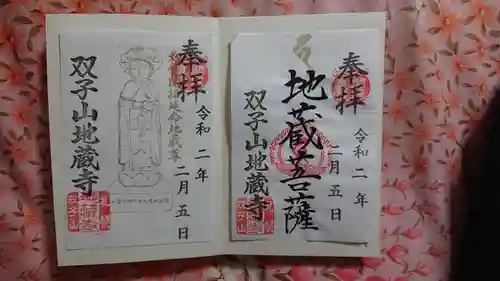 奉拝
地蔵菩薩
令和二年
二月五日
双子山地蔵寺
奉拝
延命地蔵尊
令和二年
二月五日
双子山地蔵寺